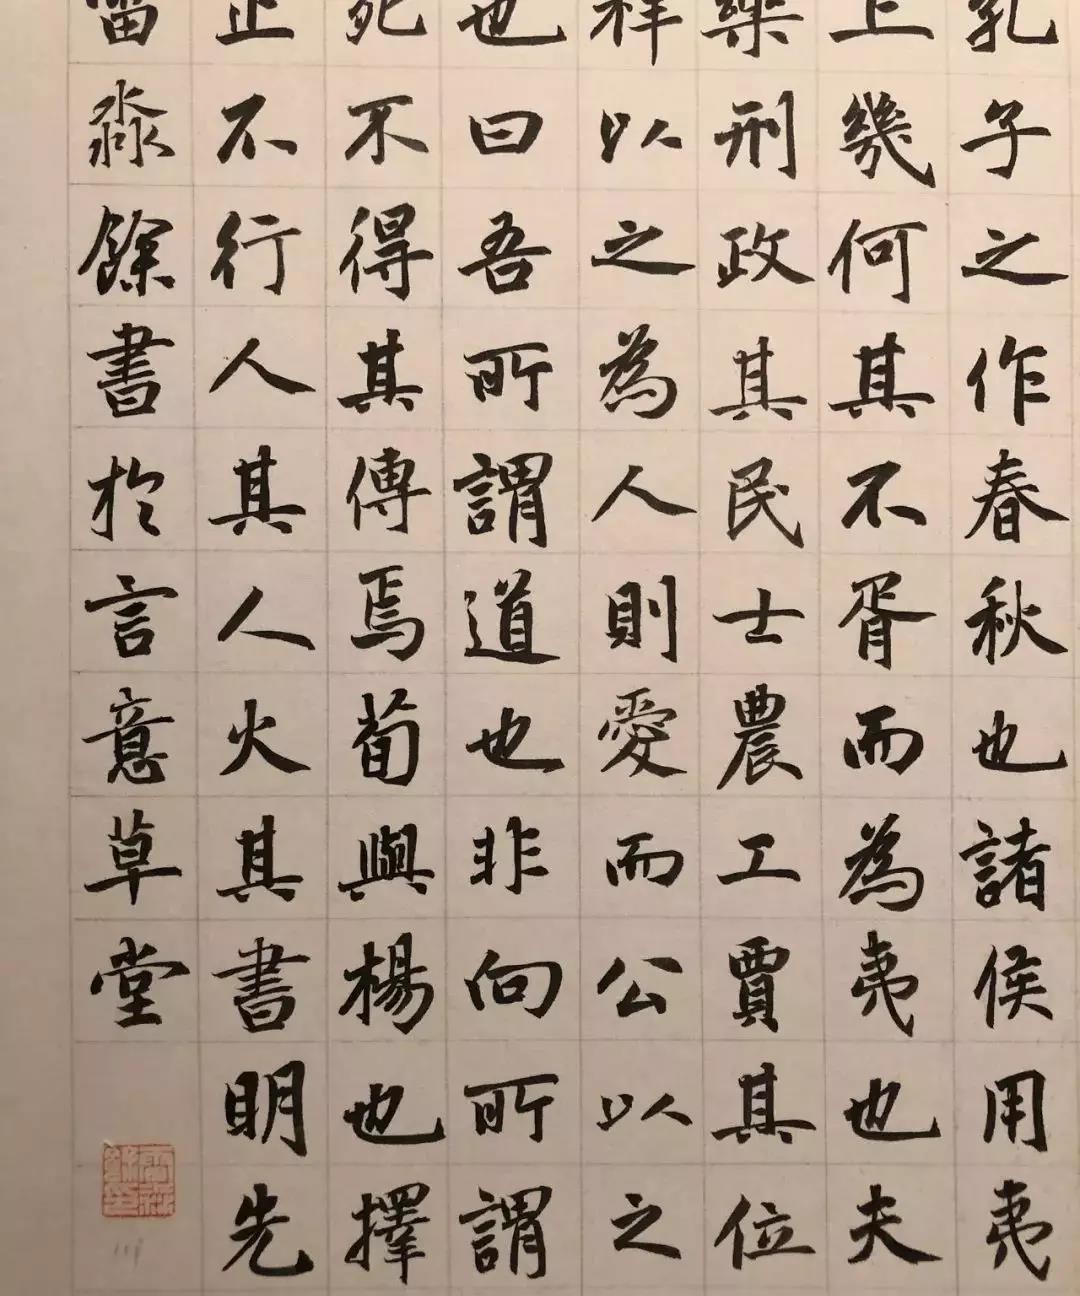 孔子之作春秋也諸侯用夷
上幾何其不胥而為夷也夫
樂刑政其民士農工賈其位
祥以之為人則愛而公以之
也曰吾所謂道也非向所謂
死不得其傳焉荀與楊也擇
止不行人其人火其書明先
淼餘書於言意草堂